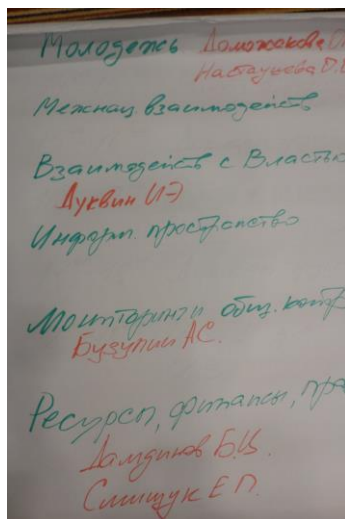 Молодежь Доможакова
Настаушева О.
Межнац. взаимодейств
Взаимодейств с Властью
Дуквин И
Информ. пространство
Мониторинг и общ. контр
Бузулин АС.
Ресурсы, финансы, пра
Дамдинов Б.Ц.
Слищук Е П.